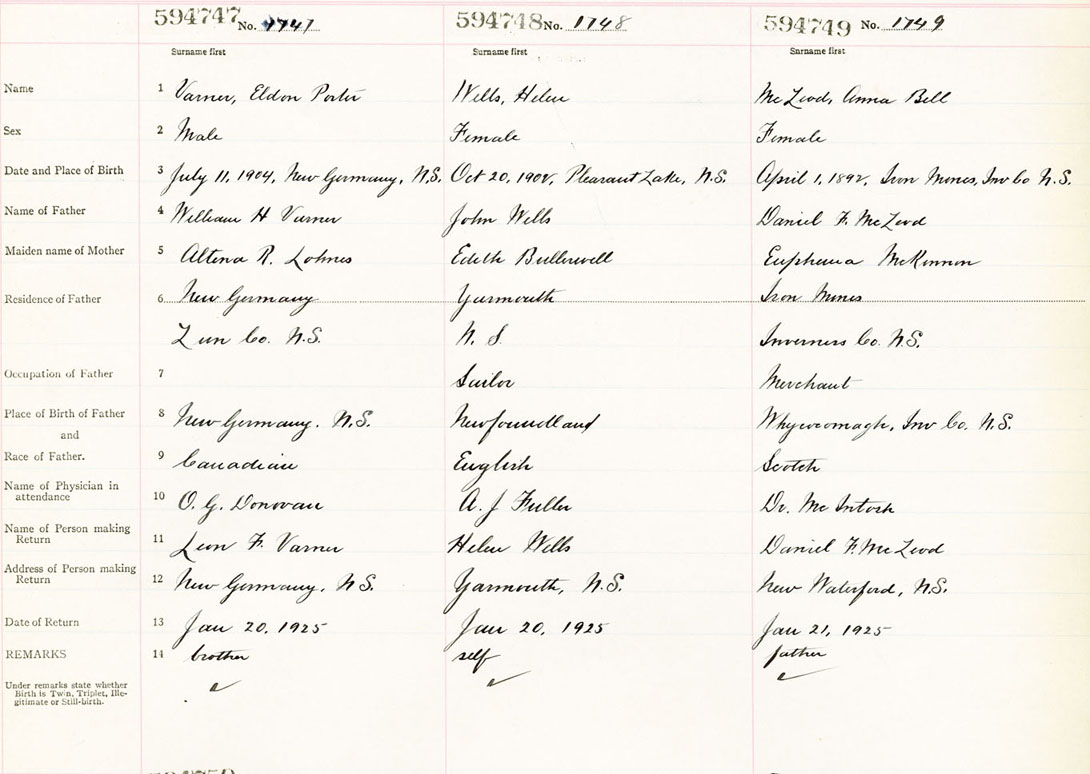 594747 No. 1747 594748 No. 1748 594749 No. 1749
Surname first Surname first Surname first
Name 1 Varner, Eldon Porter Wells, Helen McLeod, Anna Bell
Sex 2 Male Female Female
Date and Place of Birth 3 July 11, 1904, New Germany, N.S. Oct 20, 1902, Pleasant Lake, N.S. April 1, 1892, Iron Mines, Inv Co N.S.
Name of Father 4 William H Varner John Wells Daniel F. McLeod
Maiden name of Mother 5 Altena R. Lohnes Edith Bullerwell Euphemia McKinnon
Residence of Father 6 New Germany Yarmouth Iron Mines
Lun Co. N.S. N. S. Inverness Co. N.S.
Occupation of Father 7 Sailor Merchant
Place of Birth of Father 8 New Germany. N.S. Newfoundland Whycocomagh, Inv Co. N.S.
and
Race of Father. 9 Canadian English Scotch
Name of Physician in
attendance 10 O. G. Donovan A. J Fuller Dr. McIntosh
Name of Person making
Return 11 Leon F. Varner Helen Wells Daniel F. McLeod
Address of Person making
Return 12 New Germany, N.S. Yarmouth, N.S. New Waterford, N.S.
Date of Return 13 Jan 20, 1925 Jan 20, 1925 Jan 21, 1925
REMARKS 14 brother self father
Under remarks state whether
Birth is Twin, Triplet, Ille-
gitimate or Still-birth.